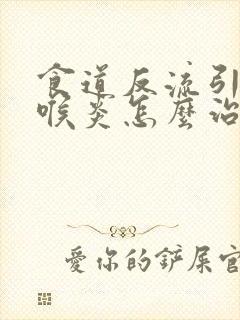 食道反流引
喉炎怎麼治
愛你的鏟屎官